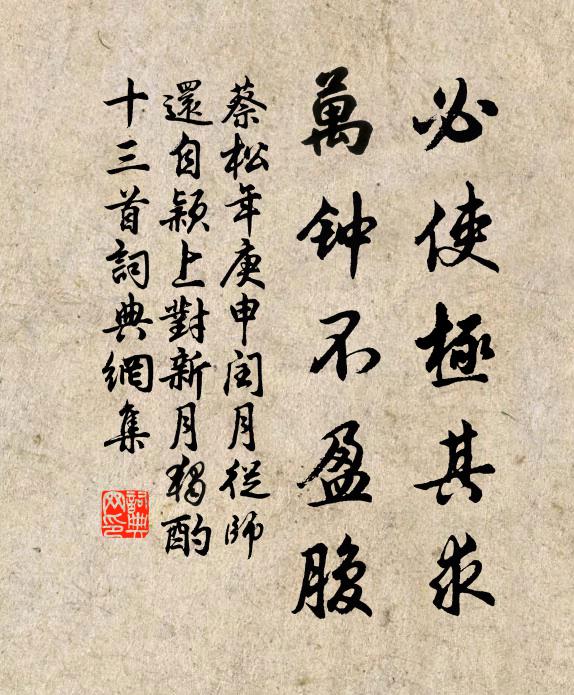 必使極其求
萬钟不盈腹
蔡松年庚申闰月從師
還自颍上對新月獨酌
十三首詞典網集
詞典
网印